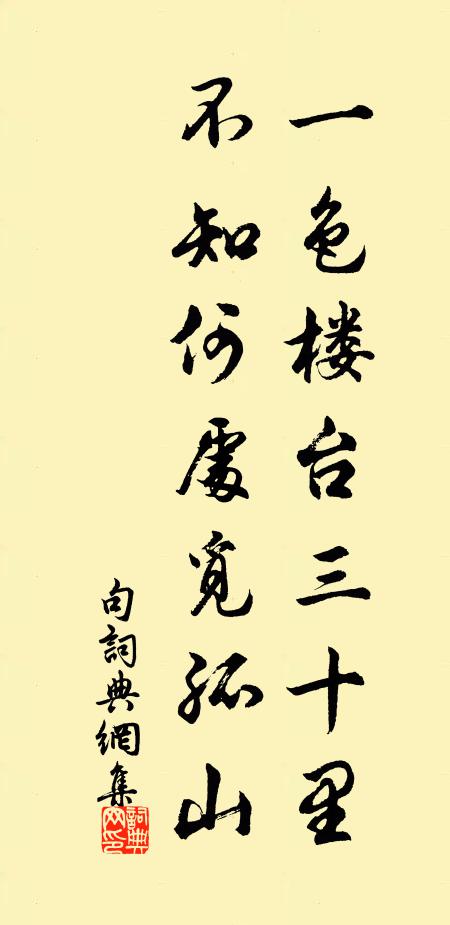 一色楼台三十里
不知何處覓孤山
句詞典網集
詞典網印